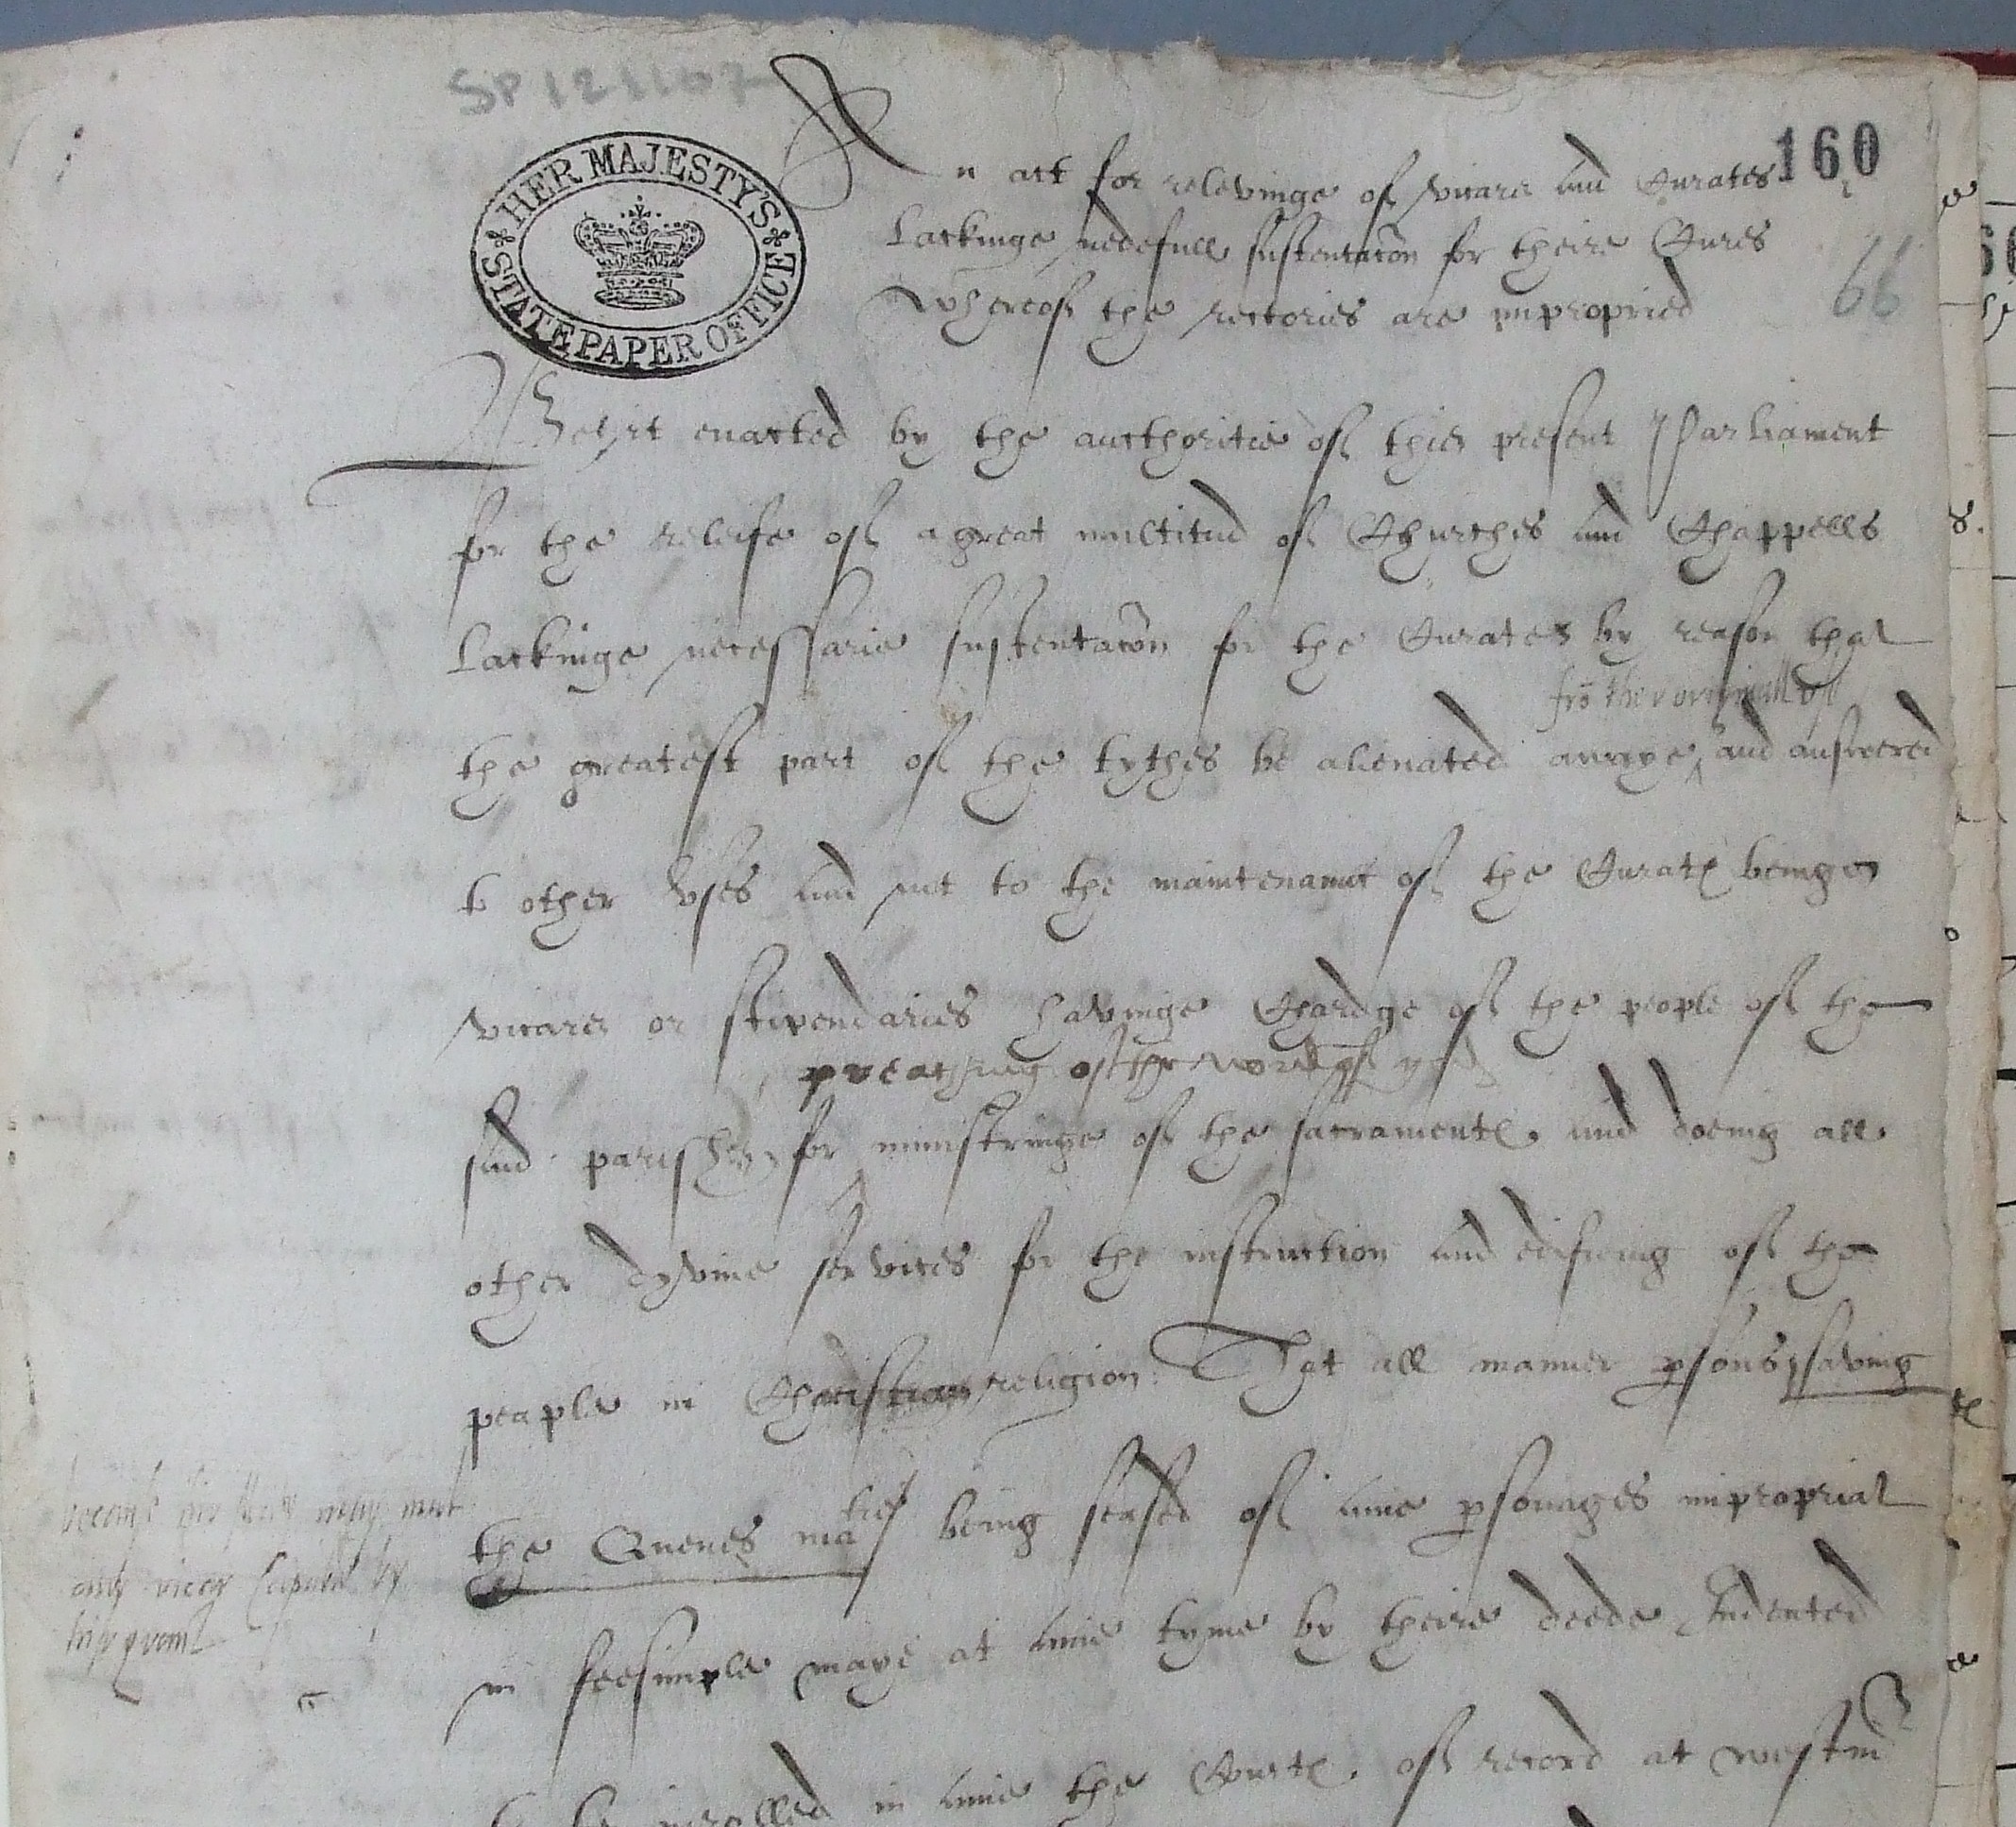 SP 12/107
HER MAJESTY'S STATE PAPER OFFICE
160
An act for relevinge of vicars and Curates
Lackinge nedefull sustentacon for theire Cures
Whereof the rectories are impropried
66
Be it enacted by the aucthoritie of this present Parliament
for the releife of a great multitud of Churches and Chappells
Lackinge necessarie sustentacon for the Curates by reason that
fro ther originall use
the greatest part of the tythes be alienated awaye and answered
to other uses and not to the maintenannce of the Curates beinge
vicares or stipendaries havinge Chardge of the people of the
preaching of the word of god
said parishes for ministringe of the sacramentes and doeing all
other dyvine services for the instruction and edifieng of the
people in Christian religion That all manner psons saving
the Quenes maties being seased of anie psonages impropriat
because hir successors may not
any vicar by
hir grant
in feesimple maye at anie tyme by theire deede Indented
inrolled in anie the Courtes of record at westm